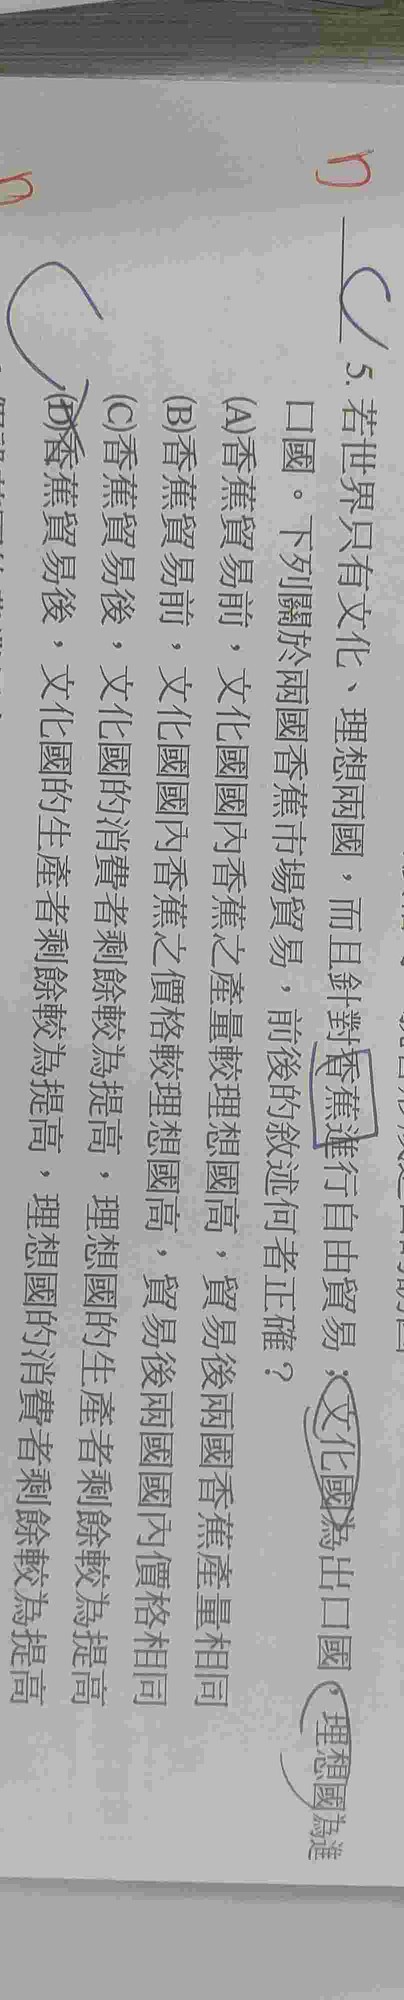 C 5. 若世界只有文化、理想兩國，而且針對香蕉進行自由貿易；文化國為出口國，理想國為進
口國。下列關於兩國香蕉市場貿易，前後的敘述何者正確？
(A)香蕉貿易前，文化國國內香蕉之產量較理想國高，貿易後兩國香蕉產量相同
(B)香蕉貿易前，文化國國內香蕉之價格較理想國高，貿易後兩國國內價格相同
(C)香蕉貿易後，文化國的消費者剩餘較為提高，理想國的生產者剩餘較為提高
(D)香蕉貿易後，文化國的生產者剩餘較為提高，理想國的消費者剩餘較為提高